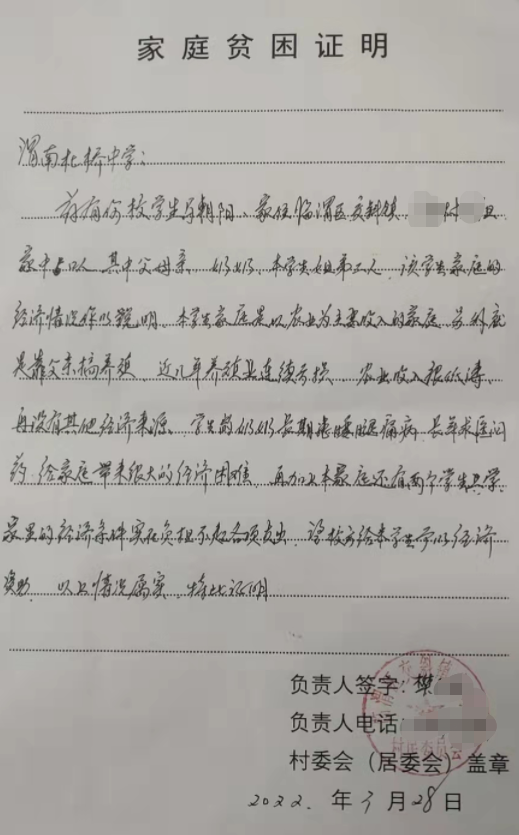 家庭贫困证明
渭南北桥中学:
兹有你校学生马朝阳、家住临渭区交斜镇 村 且
家中5口人 其中父母亲、奶奶、本学生姐弟二人、该学生家庭的
经济情况作以说明、本学生家庭是以农业为主要收入的家庭、另外就
是靠父亲搞养殖、近几年养殖业连续亏损、农业收入很
再没有其他经济来源、学生的奶奶长期患腰腿痛病、长年求医问
药 给家庭带来很大的经济困难、再加上本家庭还有两个学生上学、
家里的经济条件实在负担不起各项支出、望校方给本学生予以经济
资助、以上情况属实、特此证明
负责人签字:樊
负责人电话:
村委会(居委会)盖章
2022.年3月28日
村民委员会